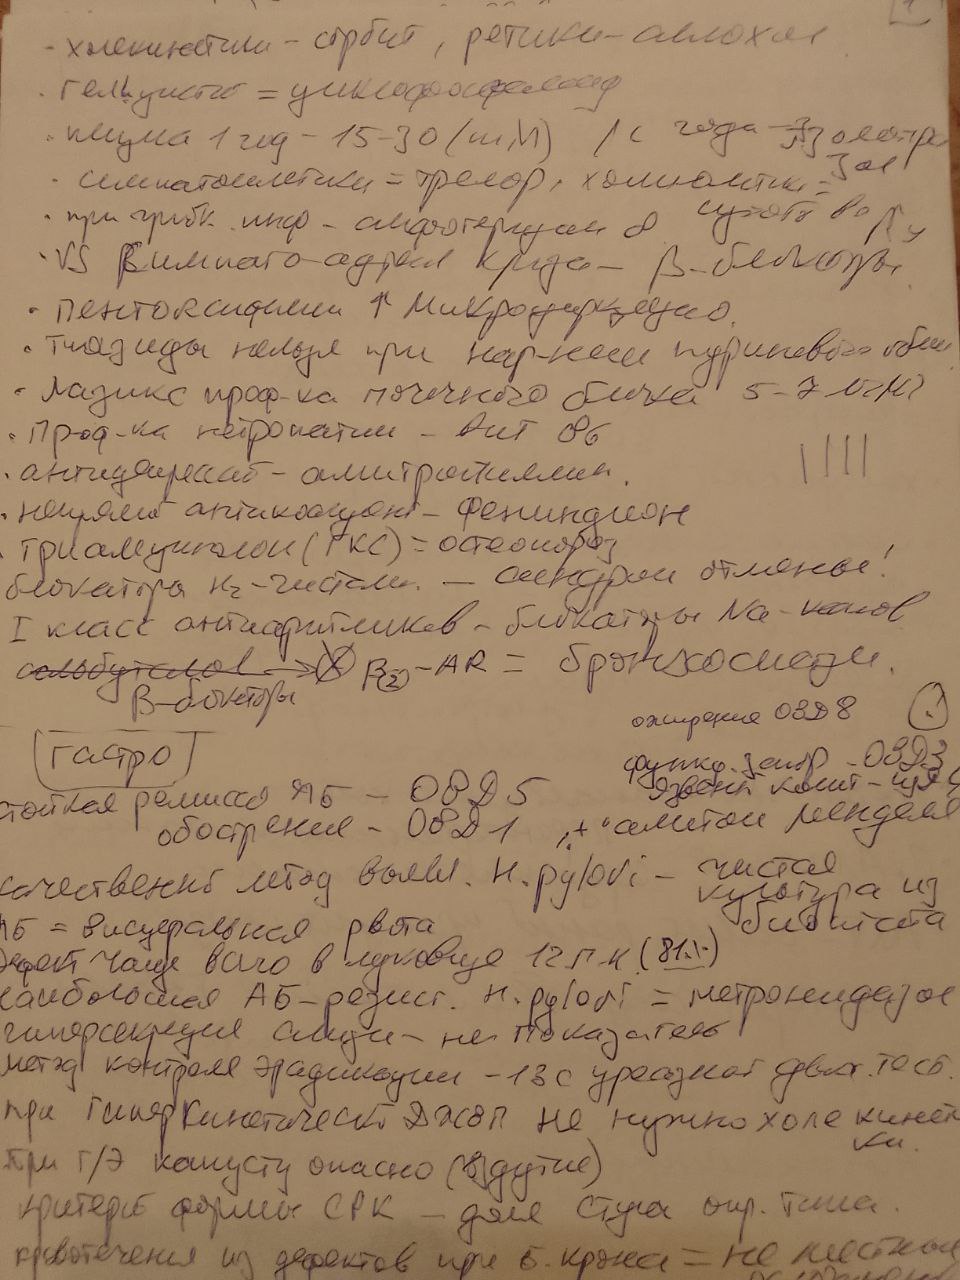 1
· холекинетики - сорбит, ретики - аллохол
· = циклофосфамид
· пневма 1 год - 15-30 (mM) / с года -
· симпатомиметики = тремор, холинолитики =
· при грибк. инф - амфотерицин В сухость во рту
· VS симпато-адрен криза - β-блокаторы
· пентоксифиллин ↑ микроциркуляцию.
· тиазиды нельзя при нар-нии пуринового обмен
· Лазикс проф-ка почечного блока 5-7 мг/кг
· Проф-ка нейропатии - вит В6
· антидепрессант - амитриптиллин.
· непрямой антикоагулянт - фениндион
· триамцинолон (ГКС) = остеопороз
блокаторы H₂-гистамин. - синдром отмены!
I класс антиаритмиков - блокаторы Na-каналов
сальбутамол → β(2)-AR = бронхоспазм.
β-блокаторы
ожирение ОВД 8
Гастро
функц. запор - ОВД 3
стойкая ремиссия ЯБ - ОВД 5
язвенн колит -
обострения - ОВД 1 , + симптом Менделя
качественный метод выявл. H. pylori - чистая
культура из
биоптата
ЯБ = висцеральная рвота
эффект чаще всего в луковице 12 п.к. (81%)
наибольшая АБ-резист. H. pylori = метронидазол
гиперсекреция слизи - не показатель
метод контроля эрадикации - 13С уреазный дых. тест.
при гиперкинетической ДЖВП не нужно холекинети
ки.
При Г/Э капусту опасно (вздутие)
критерий формы СРК - доля стула опр. типа.
кровотечения из дефектов при б. крона = не